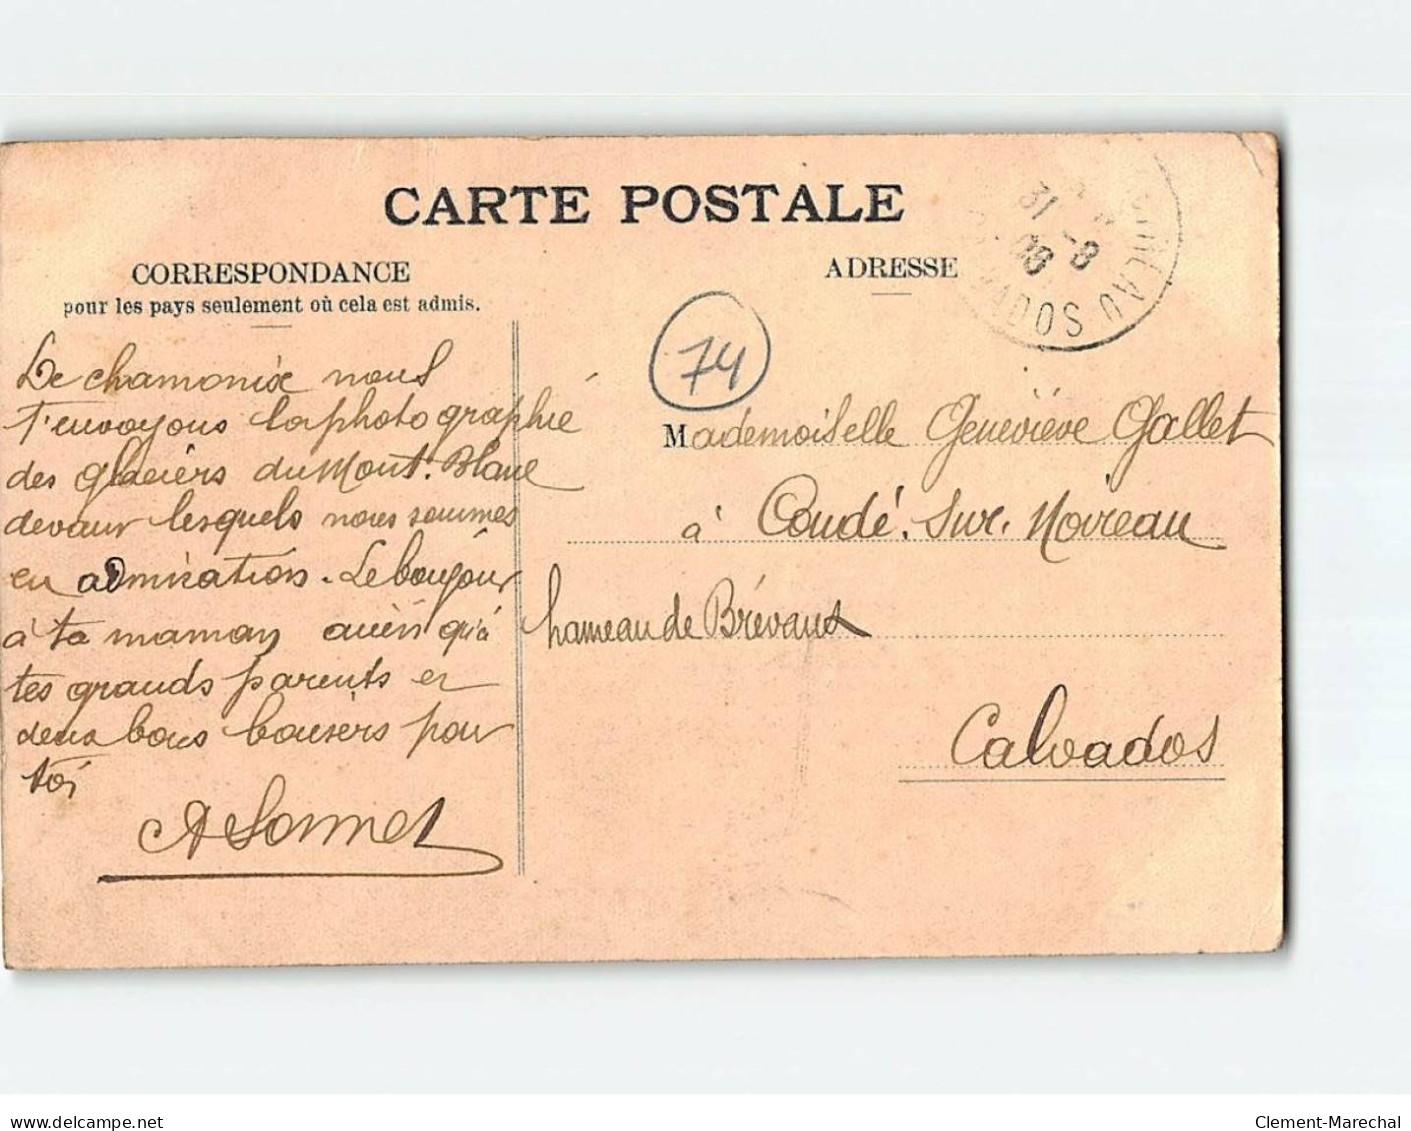 CARTE POSTALE
CORRESPONDANCE
pour les pays seulement où cela est admis.
ADRESSE
31 -8
08
74
De chamonix nous
t'envoyons la photographie
des glaciers du Mont. Blanc
devant lesquels nous sommes
en admiration. Le bonjour
à ta maman ainsi qu'à
tes grands parents et
deux bons baisers pour
toi
A Sonnet
Mademoiselle Geneviève Gallet
à Condé. Sur. Noireau
hameau de Brévaux
Calvados
www.delcampe.net
Clement-Marechal